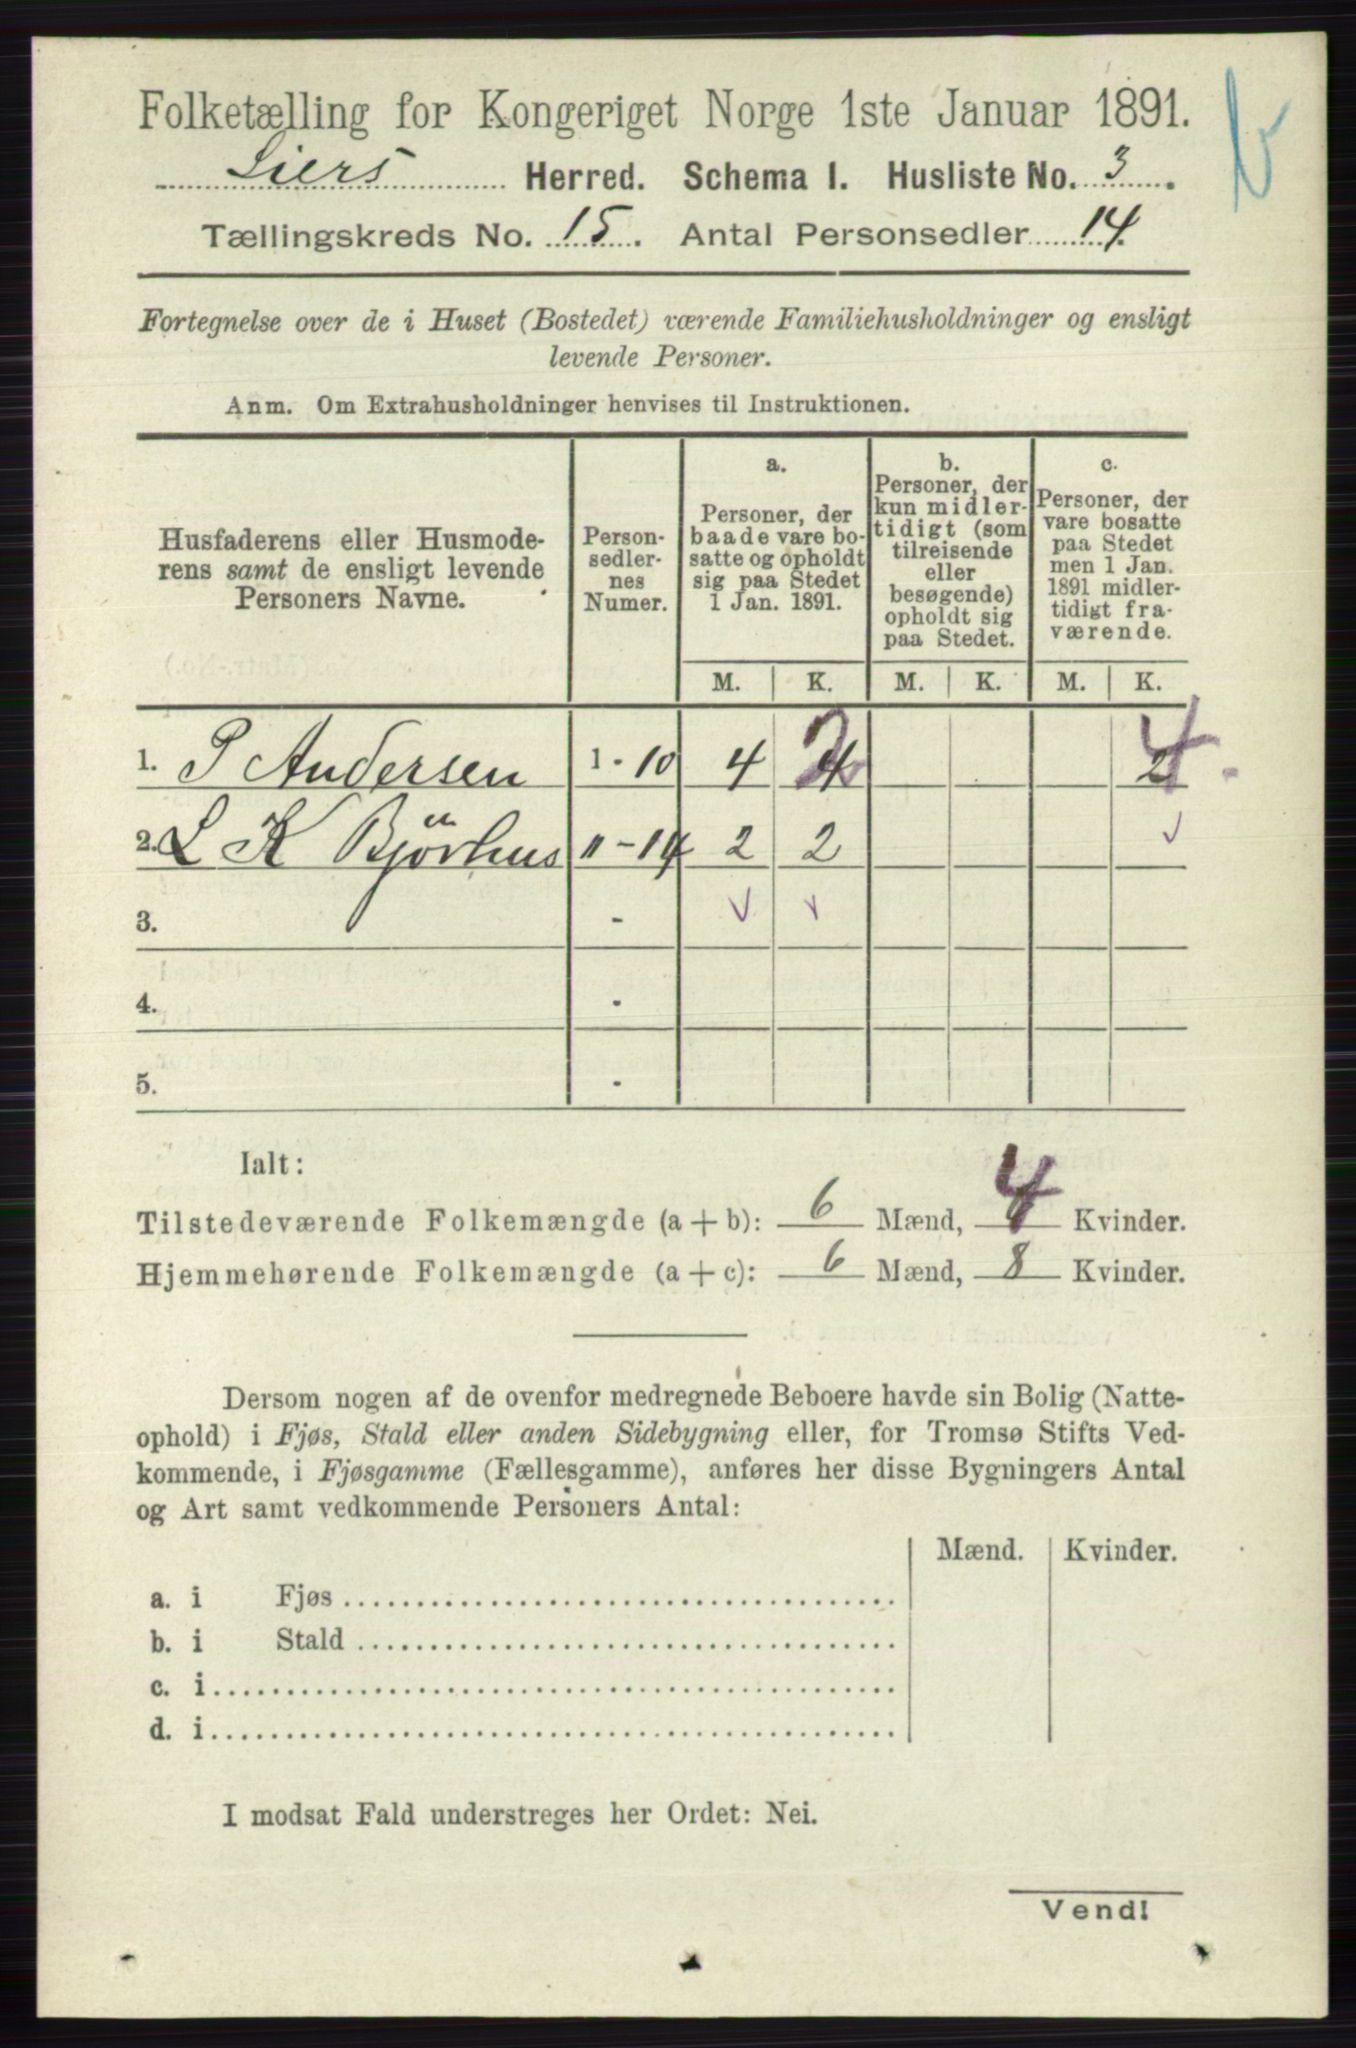 Folketælling for Kongeriget Norge 1ste Januar 1891.
Liers Herred. Schema I. Husliste No. 3.
Tællingskreds No. 15. Antal Personsedler 14.
Fortegnelse over de i Huset (Bostedet) værende Familiehusholdninger og ensligt
levende Personer.
Anm. Om Extrahusholdninger henvises til Instruktionen.
Husfaderens eller Husmode-
rens samt de ensligt levende
Personers Navne.
Person-
sedler-
nes
Numer.
a.
Personer, der
baade vare bo-
satte og opholdt
sig paa Stedet
1 Jan. 1891.
b.
Personer, der
kun midler-
tidigt (som
tilreisende
eller
besøgende)
opholdt sig
paa Stedet.
c.
Personer, der
vare bosatte
paa Stedet
men 1 Jan.
1891 midler-
tidigt fra-
værende.
M. K. M. K. M. K.
1. P Andersen 1-10 4 2 4
2. L K Bjørhus 11-14 2 2
3. -
4. -
5. -
Ialt:
Tilstedeværende Folkemængde (a + b): 6 Mænd, 4 Kvinder.
Hjemmehørende Folkemængde (a + c): 6 Mænd, 8 Kvinder.
Dersom nogen af de ovenfor medregnede Beboere havde sin Bolig (Natte-
ophold) i Fjøs, Stald eller anden Sidebygning eller, for Tromsø Stifts Ved-
kommende, i Fjøsgamme (Fællesgamme), anføres her disse Bygningers Antal
og Art samt vedkommende Personers Antal:
Mænd. Kvinder.
a. i Fjøs
b. i Stald
c. i
d. i
I modsat Fald understreges her Ordet: Nei.
Vend!